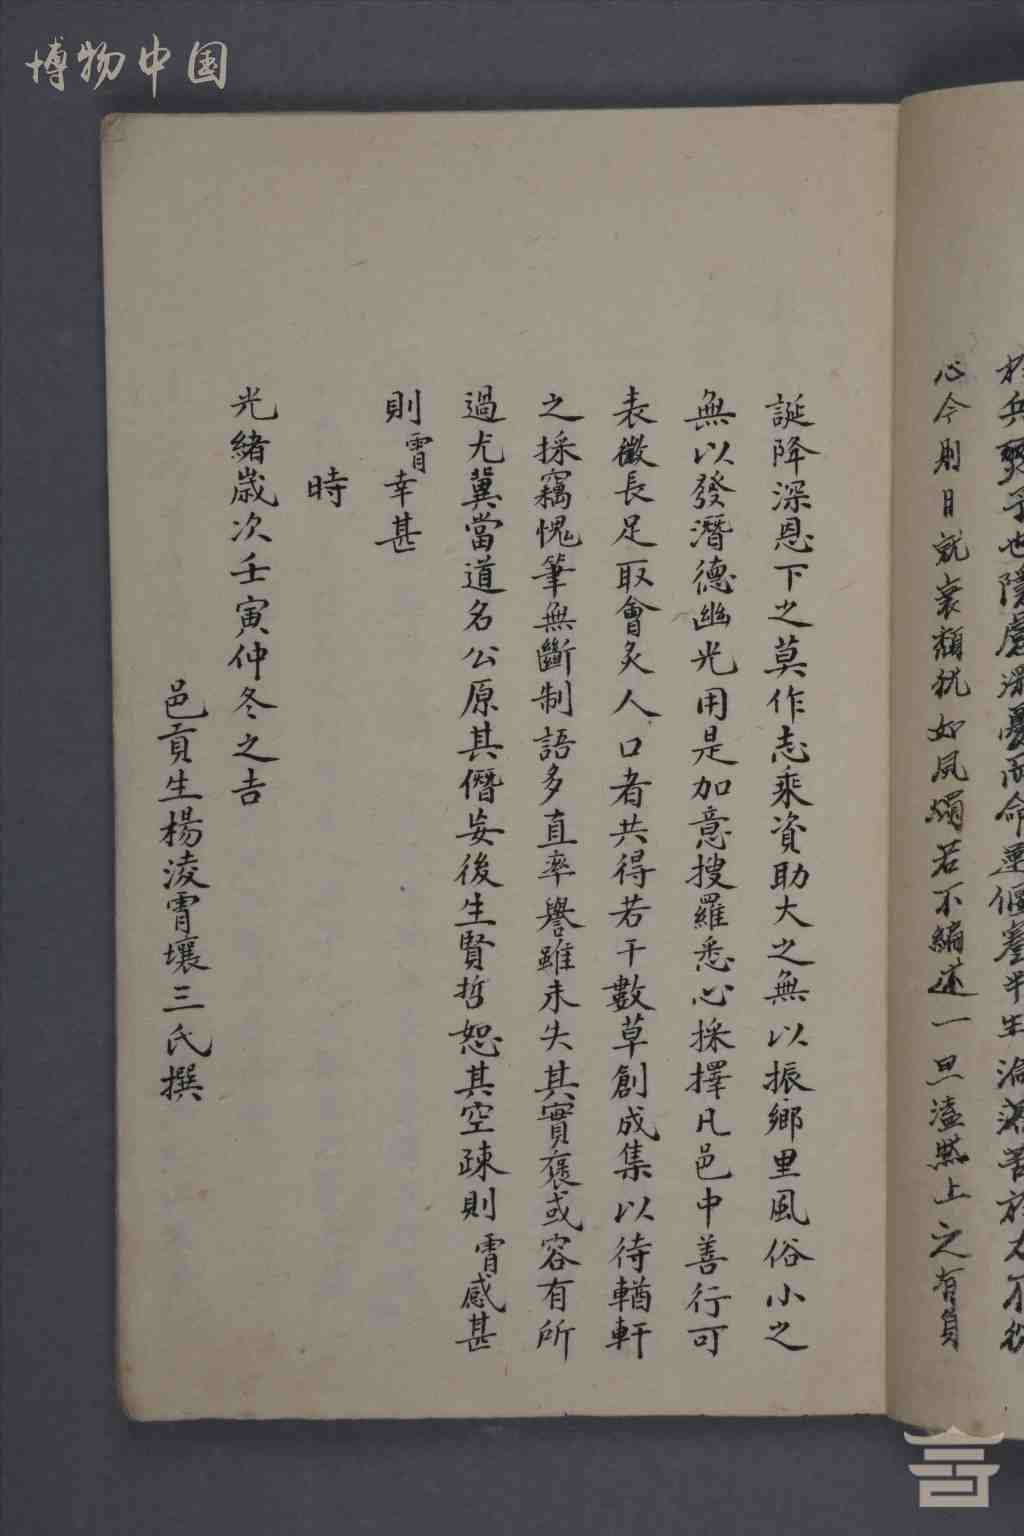 博物中国
心今則日就衰頹犹如風燭若不編述一旦溘然上之有負
誕降深恩下之莫作志乘資助大之無以振鄉里風俗小之
無以發潛德幽光用是加意搜羅悉心採擇凡邑中善行可
表徵長足取會炙人口者共得若干數草創成集以待輶軒
之採竊愧筆無斷制語多直率譽雖未失其實褒或容有所
過尤冀當道名公原其僭妄後生賢哲恕其空疎則霄感甚
則霄幸甚
時
光緒歲次壬寅仲冬之吉
邑貢生楊淩霄壤三氏撰